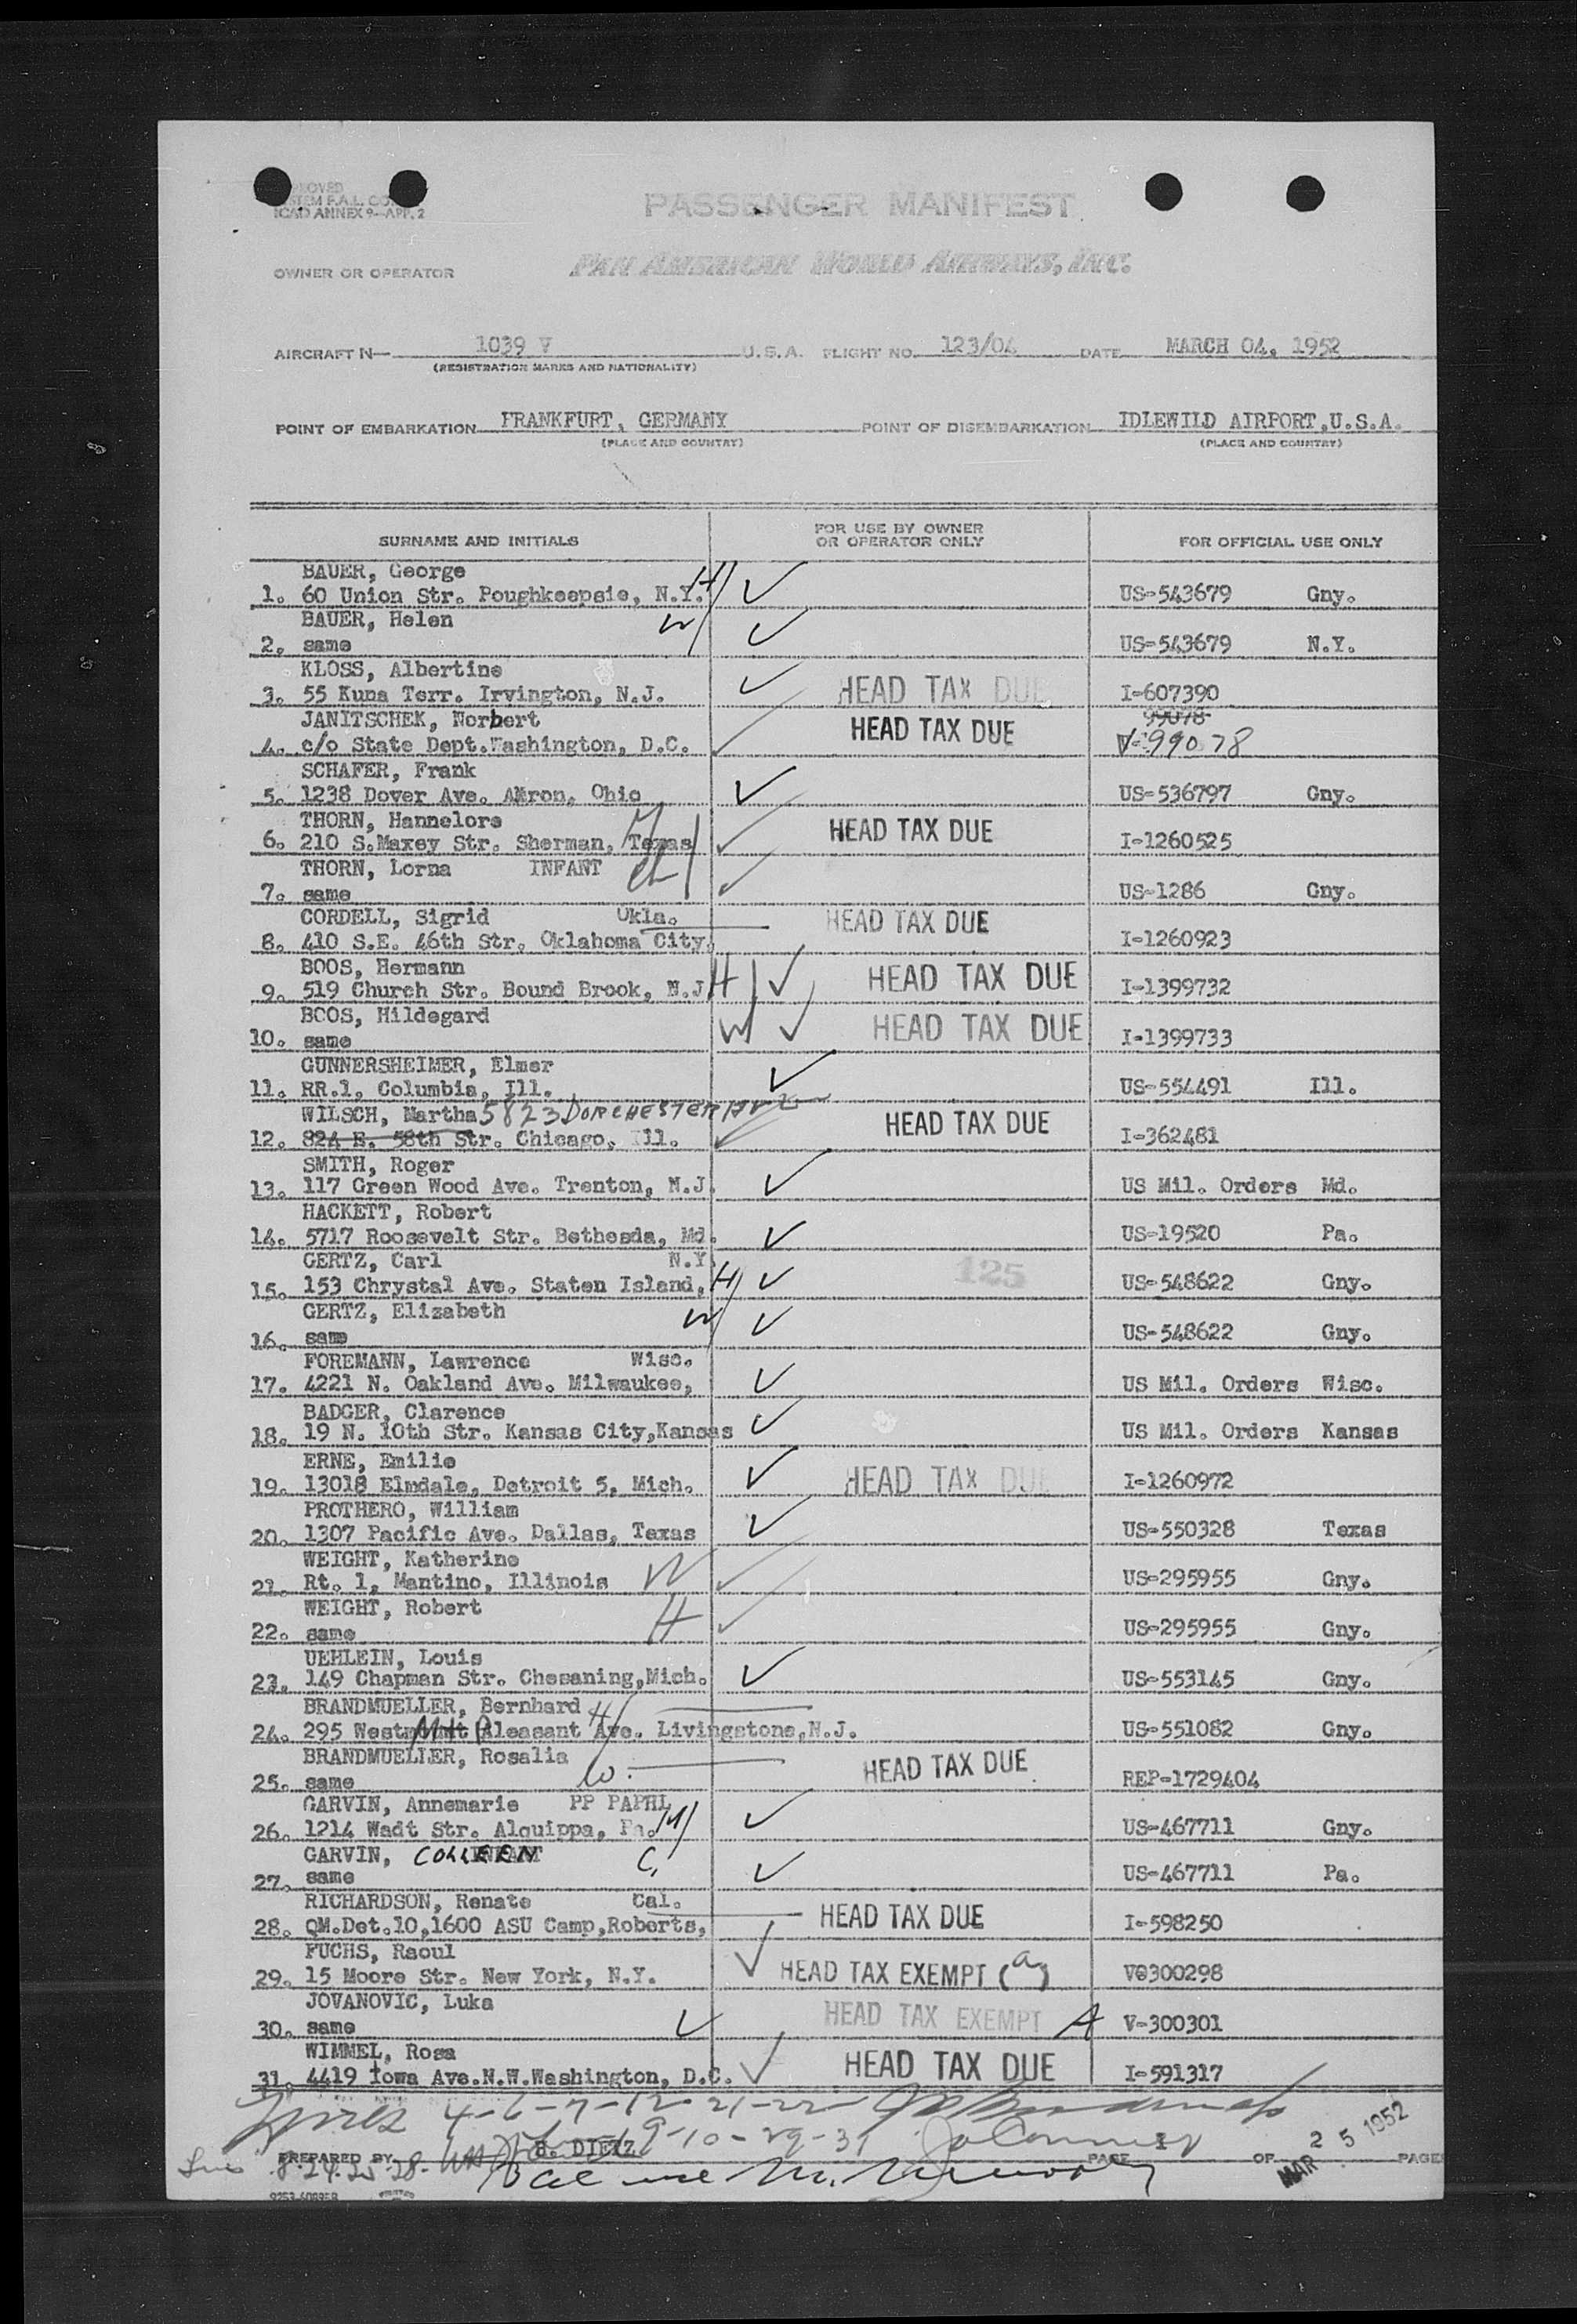 ICAO ANNEX 9—APP. 2
PASSENGER MANIFEST
OWNER OR OPERATOR PAN AMERICAN WORLD AIRWAYS, INC.
AIRCRAFT N— 1039 V U.S.A. FLIGHT NO. 123/04 DATE MARCH 04, 1952
(REGISTRATION MARKS AND NATIONALITY)
POINT OF EMBARKATION FRANKFURT, GERMANY POINT OF DISEMBARKATION IDLEWILD AIRPORT,U.S.A.
(PLACE AND COUNTRY) (PLACE AND COUNTRY)
SURNAME AND INITIALS FOR USE BY OWNER OR OPERATOR ONLY FOR OFFICIAL USE ONLY
BAUER, George H
1. 60 Union Str. Poughkeepsie, N.Y. ✓ US-543679 Gny.
BAUER, Helen W
2. same ✓ US-543679 N.Y.
KLOSS, Albertine
3. 55 Kuna Terr. Irvington, N.J. ✓ HEAD TAX DUE I-607390
JANITSCHEK, Norbert HEAD TAX DUE 99078
4. c/o State Dept.Washington, D.C. ✓ V-99078
SCHAFER, Frank
5. 1238 Dover Ave. Akron, Ohio ✓ US-536797 Gny.
THORN, Hannelore M
6. 210 S.Maxey Str. Sherman, Texas ✓ HEAD TAX DUE I-1260525
THORN, Lorna INFANT Ch
7. same ✓ US-1286 Gny.
CORDELL, Sigrid Okla. HEAD TAX DUE
8. 410 S.E. 46th Str. Oklahoma City, I-1260923
BOOS, Hermann
9. 519 Church Str. Bound Brook, N.J H ✓ HEAD TAX DUE I-1399732
BOOS, Hildegard
10. same W ✓ HEAD TAX DUE I-1399733
GUNNERSHEIMER, Elmer
11. RR.1, Columbia, Ill. ✓ US-554491 Ill.
WILSCH, Martha 5823 DORCHESTER AVE
12. 824 E. 58th Str. Chicago, Ill. ✓ HEAD TAX DUE I-362481
SMITH, Roger
13. 117 Green Wood Ave. Trenton, N.J. ✓ US Mil. Orders Md.
HACKETT, Robert
14. 5717 Roosevelt Str. Bethesda, Md. ✓ US-19520 Pa.
GERTZ, Carl N.Y.
15. 153 Chrystal Ave. Staten Island, H ✓ 125 US-548622 Gny.
GERTZ, Elizabeth W
16. same ✓ US-548622 Gny.
FOREMANN, Lawrence Wisc.
17. 4221 N. Oakland Ave. Milwaukee, ✓ US Mil. Orders Wisc.
BADGER, Clarence
18. 19 N. 10th Str. Kansas City,Kansas ✓ US Mil. Orders Kansas
ERNE, Emilie
19. 13018 Elmdale, Detroit 5, Mich. ✓ HEAD TAX DUE I-1260972
PROTHERO, William
20. 1307 Pacific Ave. Dallas, Texas ✓ US-550328 Texas
WEIGHT, Katherine
21. Rt. 1, Mantino, Illinois W ✓ US-295955 Gny.
WEIGHT, Robert
22. same H ✓ US-295955 Gny.
UEHLEIN, Louis
23. 149 Chapman Str. Chesaning,Mich. ✓ US-553145 Gny.
BRANDMUELLER, Bernhard H
24. 295 West Mt Pleasant Ave. Livingstone,N.J. US-551082 Gny.
BRANDMUELLER, Rosalia
25. same W. HEAD TAX DUE REP-1729404
GARVIN, Annemarie PP PAPHL
26. 1214 Wadt Str. Alquippa, Pa. M ✓ US-467711 Gny.
GARVIN, COLLEEN INFANT C.
27. same ✓ US-467711 Pa.
RICHARDSON, Renate Cal.
28. QM.Det.10,1600 ASU Camp,Roberts, HEAD TAX DUE I-598250
FUCHS, Raoul
29. 15 Moore Str. New York, N.Y. ✓ HEAD TAX EXEMPT (a) V0300298
JOVANOVIC, Luka
30. same ✓ HEAD TAX EXEMPT A V-300301
WIMMEL, Rosa
31. 4419 Iowa Ave.N.W.Washington, D.C. ✓ HEAD TAX DUE I-591317
4-6-7-12-21-22
9-10-29-31
PREPARED BY DIETZ PAGE 1 OF 2 PAGES
8-24-25-28
MAR 5 1952